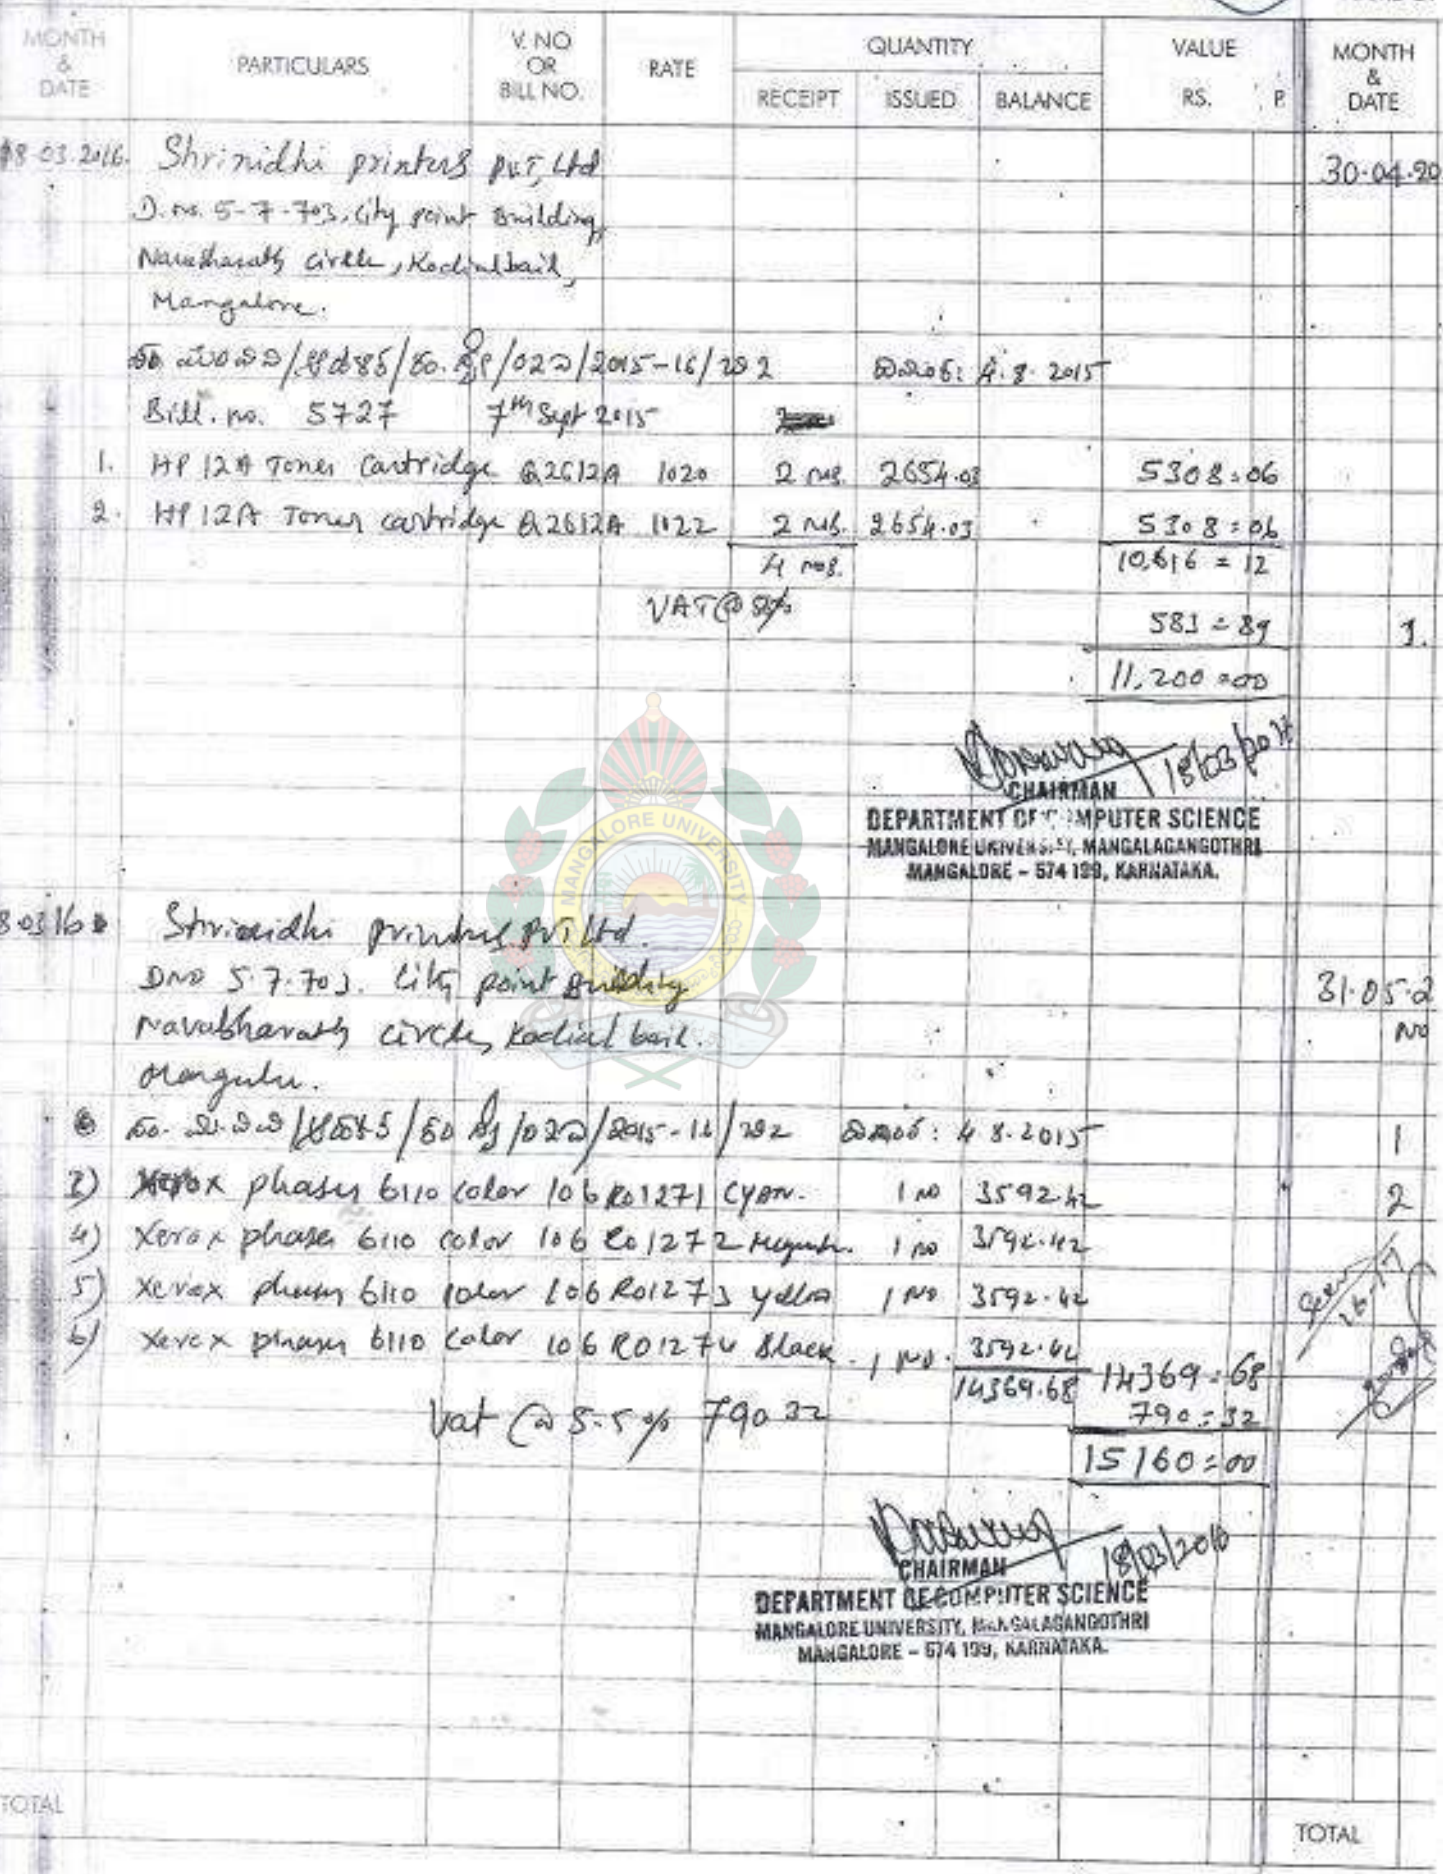 MONTH & DATE PARTICULARS V. NO OR BILL NO. RATE QUANTITY RECEIPT ISSUED BALANCE VALUE RS. P. MONTH & DATE
18-03-2016. Shrinidhi printers pvt, Ltd 30-04-20
D. no. 5-7-703, City point Building,
Navabharath circle, Kodialbail,
Mangalore.
/2015-16/292 ದಿನಾಂಕ: 4.8.2015
Bill. no. 5727 7th Sept 2015
1. HP 12A Toner Cartridge Q2612A 1020 2 nos. 2654.03 5308=06
2. HP 12A Toner cartridge Q2612A 1022 2 nos. 2654.03 5308=06
4 nos. 10,616=12
VAT @ 583=89 1.
11,200=00
18/03/2016
CHAIRMAN
DEPARTMENT OF COMPUTER SCIENCE
MANGALORE UNIVERSITY, MANGALAGANGOTHRI
MANGALORE – 574 199, KARNATAKA.
MANGALORE UNIVERSITY
8-03-16 Shrinidhi printers pvt Ltd.
DNo 5.7.703. City point Building 31.05.2
Navabharath circle, Kodial bail. No
Mangalore.
/2015-16/292 ದಿನಾಂಕ: 4 8.2015 1
3) Xerox phaser 6110 color 106 R01271 CYAN. 1 no 3592.42 2
4) Xerox phaser 6110 color 106 R01272 Magenta. 1 no 3592.42
5) Xerox phaser 6110 color 106 R01273 Yellow 1 No 3592.42
6) Xerox phaser 6110 color 106 R01274 Black - 1 No. 3592.42
14369.68 14369=68
Vat @ 5.5% 790 32 790=32
15160=00
18/03/2016
CHAIRMAN
DEPARTMENT OF COMPUTER SCIENCE
MANGALORE UNIVERSITY, MANGALAGANGOTHRI
MANGALORE – 574 199, KARNATAKA.
TOTAL TOTAL